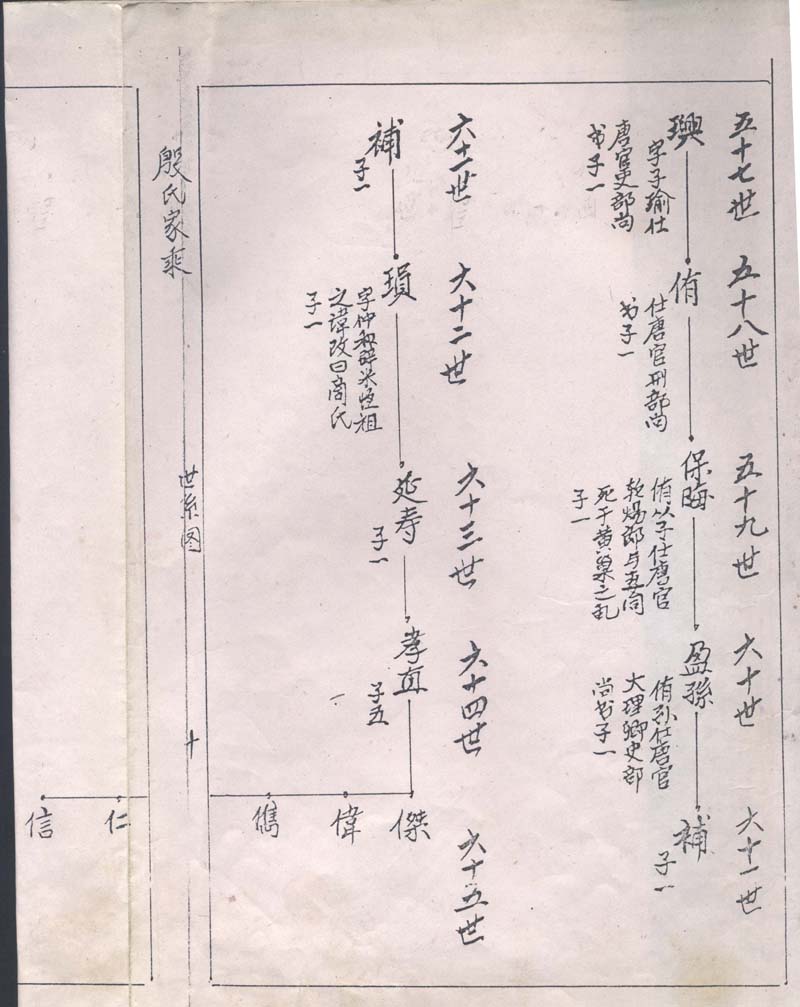 五十七世
璵
字子瑜仕
唐官吏部尚
书子一
五十八世
侑
仕唐官刑部尚
书子一
五十九世
保晦
侑从子仕唐官
死于黄巢之乱
子一
六十世
盈孫
侑孙仕唐官
大理卿史部
尚书子一
六十一世
補
子一
六十一世
補
子一
大十二世
瑣
之諱改曰商氏
子一
六十三世
延寿
子一
六十四世
孝直
子五
六十五世
傑
偉
儁
殷氏家乘
世系图
十
仁
信